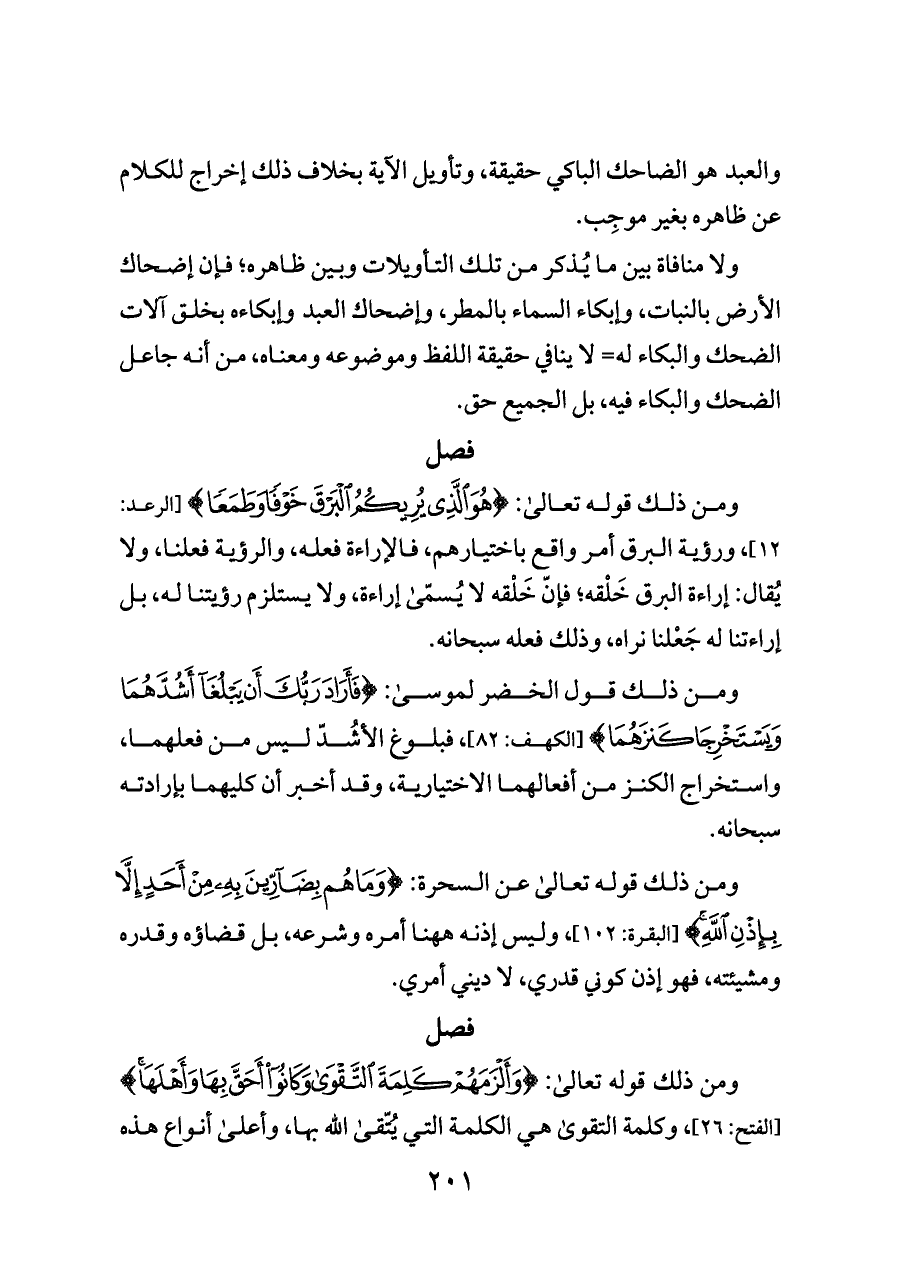 والعبد هو الضاحك الباكي حقيقة، وتأويل الآية بخلاف ذلك إخراج للكلام
عن ظاهره بغير موجِب.
ولا منافاة بين ما يُذكر من تلك التأويلات وبين ظاهره؛ فإن إضحاك
الأرض بالنبات، وإبكاء السماء بالمطر، وإضحاك العبد وإبكاءه بخلق آلات
الضحك والبكاء له= لا ينافي حقيقة اللفظ وموضوعه ومعناه، من أنه جاعل
الضحك والبكاء فيه، بل الجميع حق.
فصل
ومن ذلك قوله تعالىٰ: ﴿هُوَ ٱلَّذِى يُرِيكُمُ ٱلْبَرْقَ خَوْفًا وَطَمَعًا﴾ [الرعد:
١٢]، ورؤية البرق أمر واقع باختيارهم، فالإراءة فعله، والرؤية فعلنا، ولا
يُقال: إراءة البرق خَلْقه؛ فإنّ خَلْقه لا يُسمّىٰ إراءة، ولا يستلزم رؤيتنا له، بل
إراءتنا له جَعْلنا نراه، وذلك فعله سبحانه.
ومن ذلك قول الخضر لموسىٰ: ﴿فَأَرَادَ رَبُّكَ أَن يَبْلُغَآ أَشُدَّهُمَا
وَيَسْتَخْرِجَا كَنزَهُمَا﴾ [الكهف: ٨٢]، فبلوغ الأشُدّ ليس من فعلهما،
واستخراج الكنز من أفعالهما الاختيارية، وقد أخبر أن كليهما بإرادته
سبحانه.
ومن ذلك قوله تعالىٰ عن السحرة: ﴿وَمَا هُم بِضَآرِّينَ بِهِۦ مِنْ أَحَدٍ إِلَّا
بِإِذْنِ ٱللَّهِۚ﴾ [البقرة: ١٠٢]، وليس إذنه ههنا أمره وشرعه، بل قضاؤه وقدره
ومشيئته، فهو إذن كوني قدري، لا ديني أمري.
فصل
ومن ذلك قوله تعالىٰ: ﴿وَأَلْزَمَهُمْ كَلِمَةَ ٱلتَّقْوَىٰ وَكَانُوٓا۟ أَحَقَّ بِهَا وَأَهْلَهَاۚ﴾
[الفتح: ٢٦]، وكلمة التقوىٰ هي الكلمة التي يُتّقىٰ الله بها، وأعلىٰ أنواع هذه
٢٠١